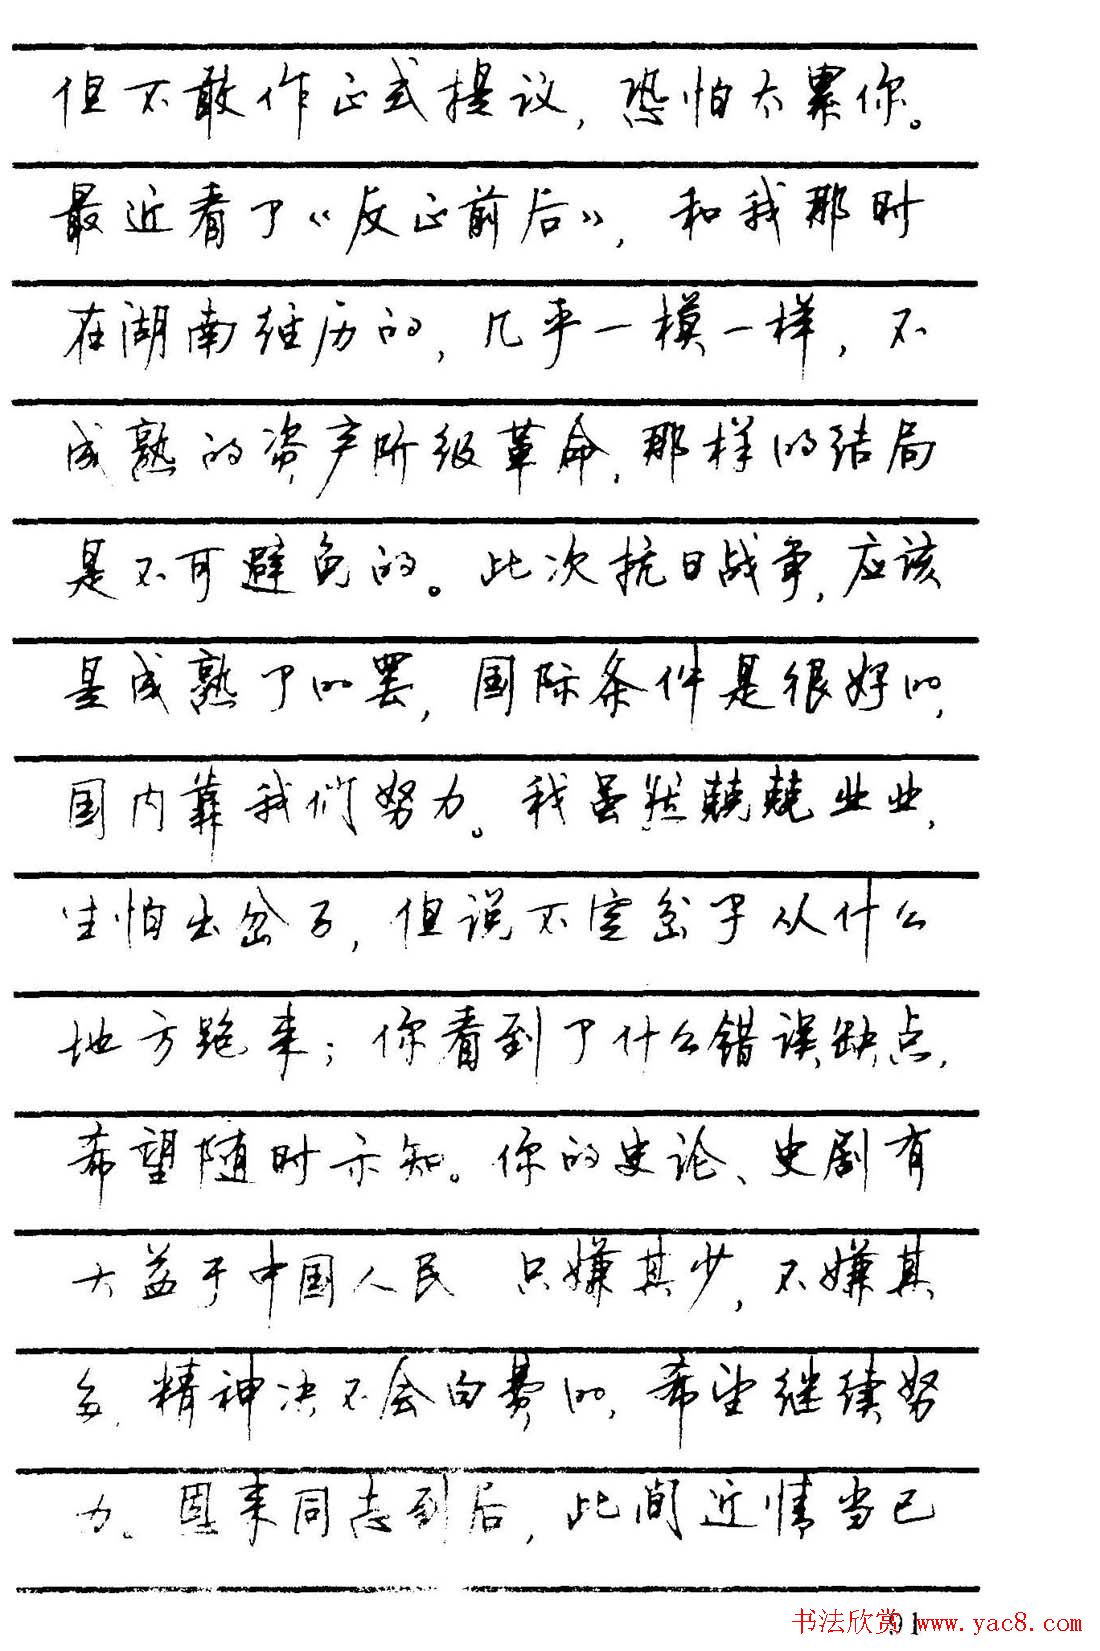 但不敢作正式提议，恐怕太累你。
最近看了《反正前后》，和我那时
在湖南经历的，几乎一模一样，不
成熟的资产阶级革命，那样的结局
是不可避免的。此次抗日战争，应该
是成熟了的罢，国际条件是很好的，
国内靠我们努力。我虽然兢兢业业，
生怕出岔子，但说不定岔子从什么
地方跑来；你看到了什么错误缺点，
希望随时示知。你的史论、史剧有
大益于中国人民 只嫌其少，不嫌其
多，精神决不会白费的，希望继续努
力。恩来同志到后，此间近情当已
91
书法欣赏 www.yac8.com